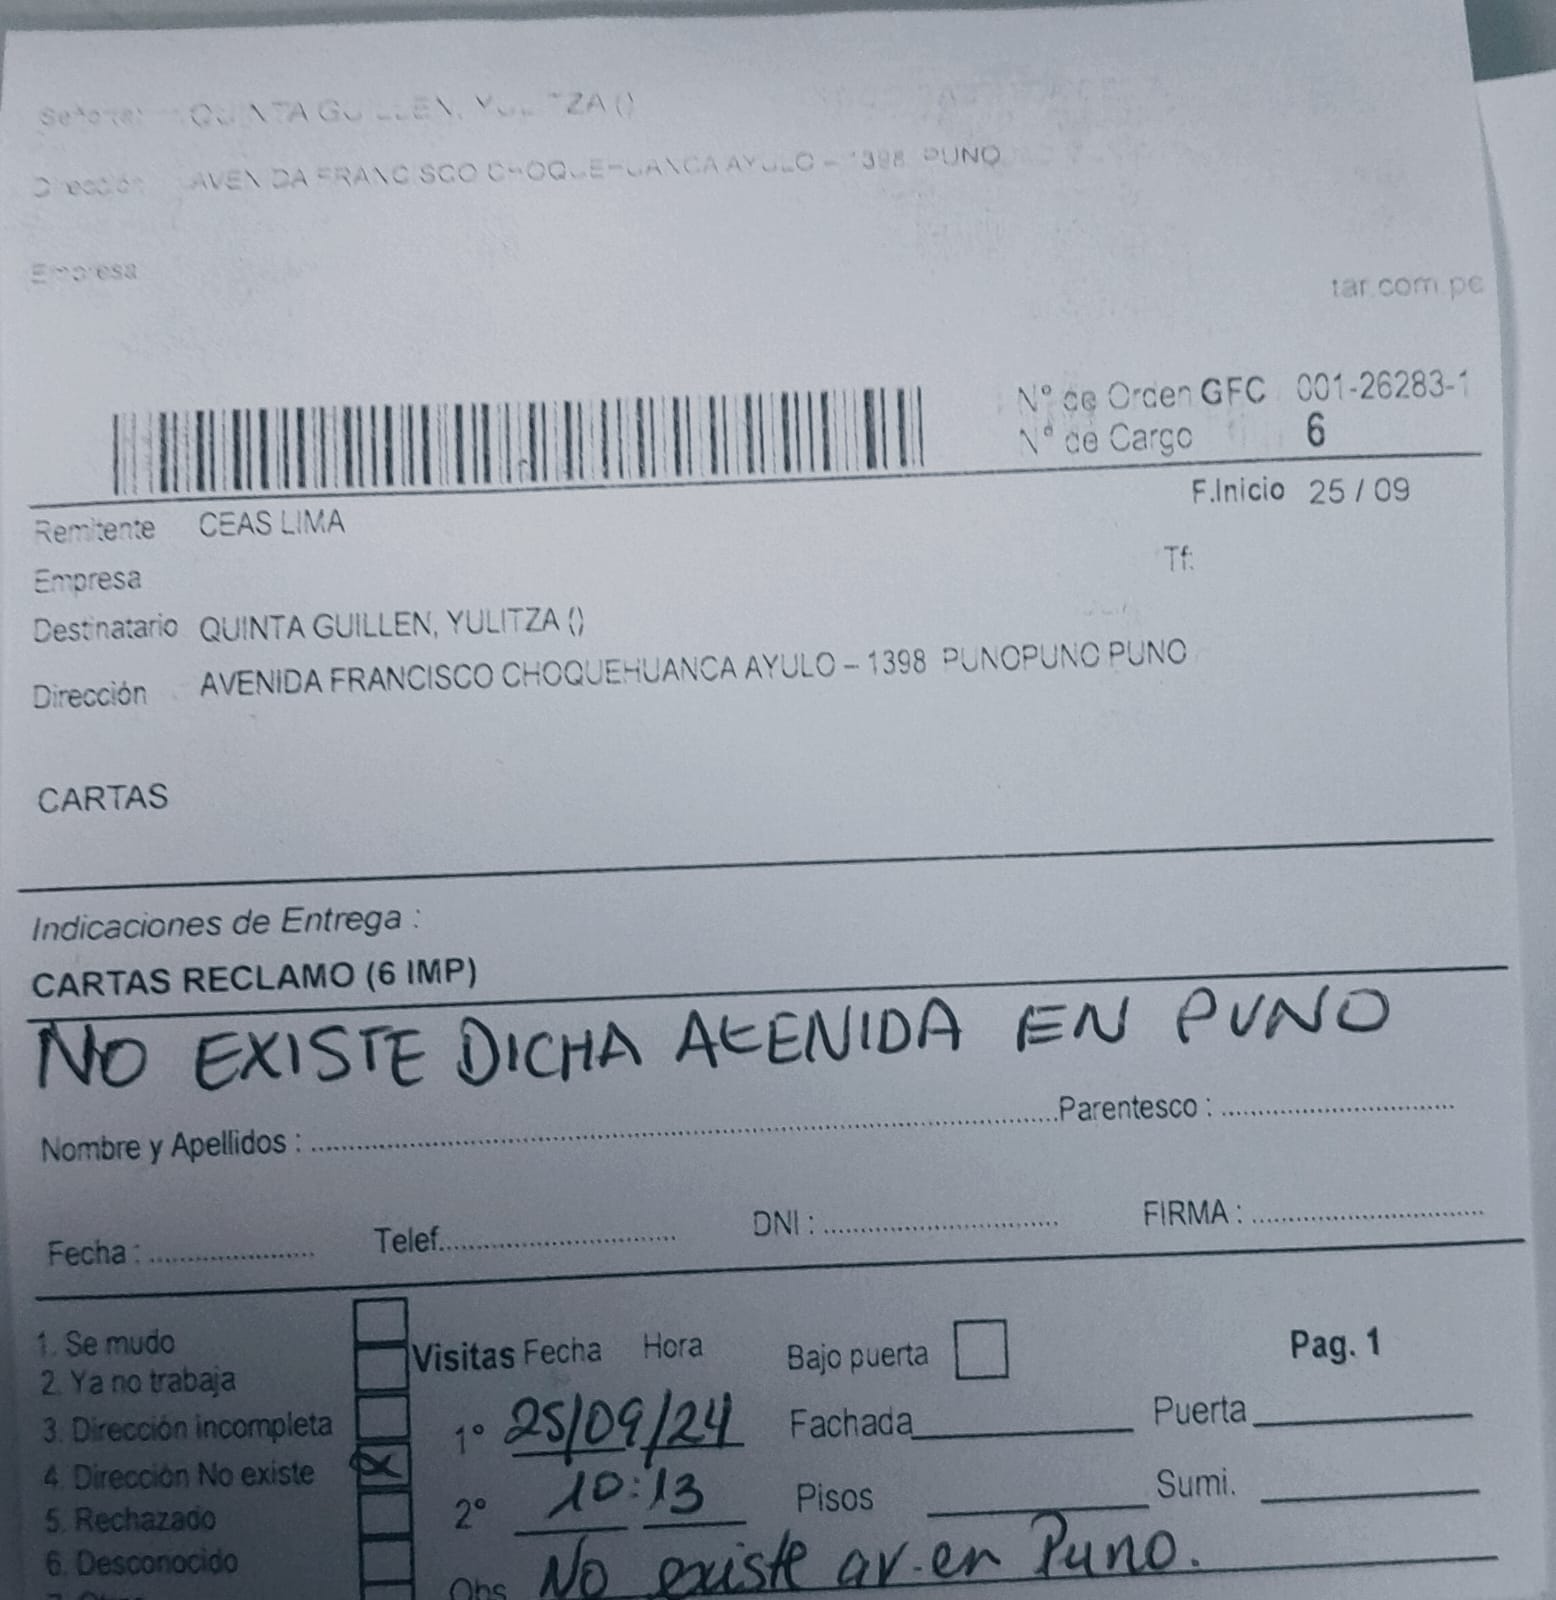 Señor(a): QUINTA GUILLEN, YULITZA ()
Dirección AVENIDA FRANCISCO CHOQUEHUANCA AYULO – 1398 PUNO
Empresa
tar.com.pe
Nº de Orden GFC 001-26283-1
Nº de Cargo 6
F.Inicio 25 / 09
Remitente CEAS LIMA
Empresa Tf:
Destinatario QUINTA GUILLEN, YULITZA ()
Dirección AVENIDA FRANCISCO CHOQUEHUANCA AYULO – 1398 PUNOPUNO PUNO
CARTAS
Indicaciones de Entrega :
CARTAS RECLAMO (6 IMP)
NO EXISTE DICHA AVENIDA EN PUNO
Nombre y Apellidos : Parentesco :
Fecha : Telef. DNI : FIRMA :
1. Se mudo
2. Ya no trabaja
3. Dirección incompleta
4. Dirección No existe
5. Rechazado
6. Desconocido
Visitas Fecha Hora Bajo puerta Pag. 1
1º 25/09/24 Fachada Puerta
2º 10:13 Pisos Sumi.
Obs No existe av. en Puno.